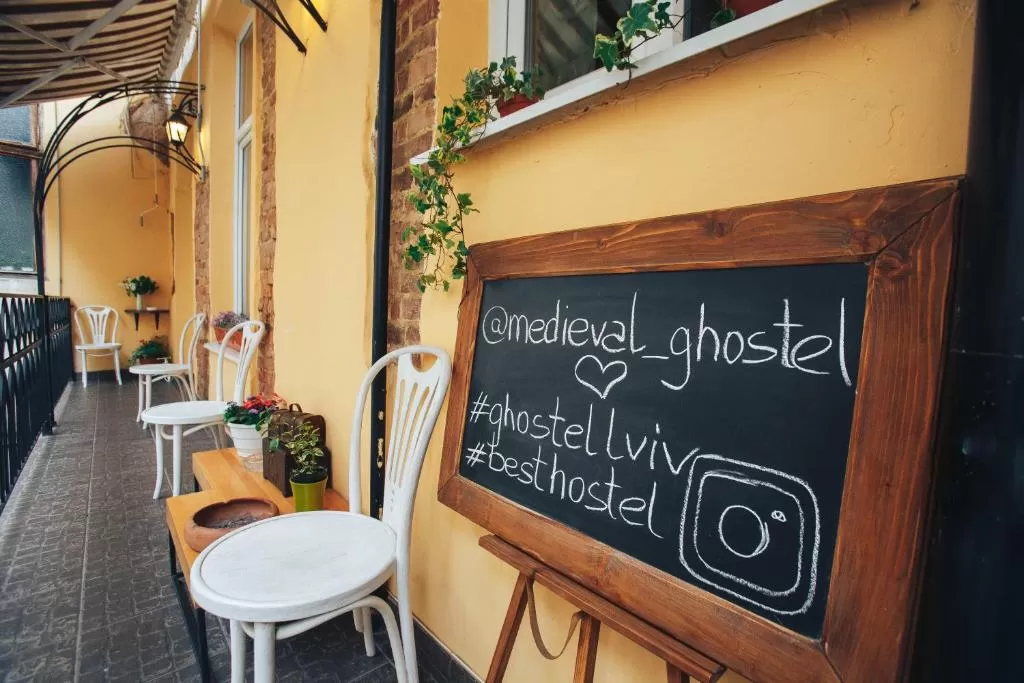 @medieval_ghostel
#ghostellviv
#besthostel